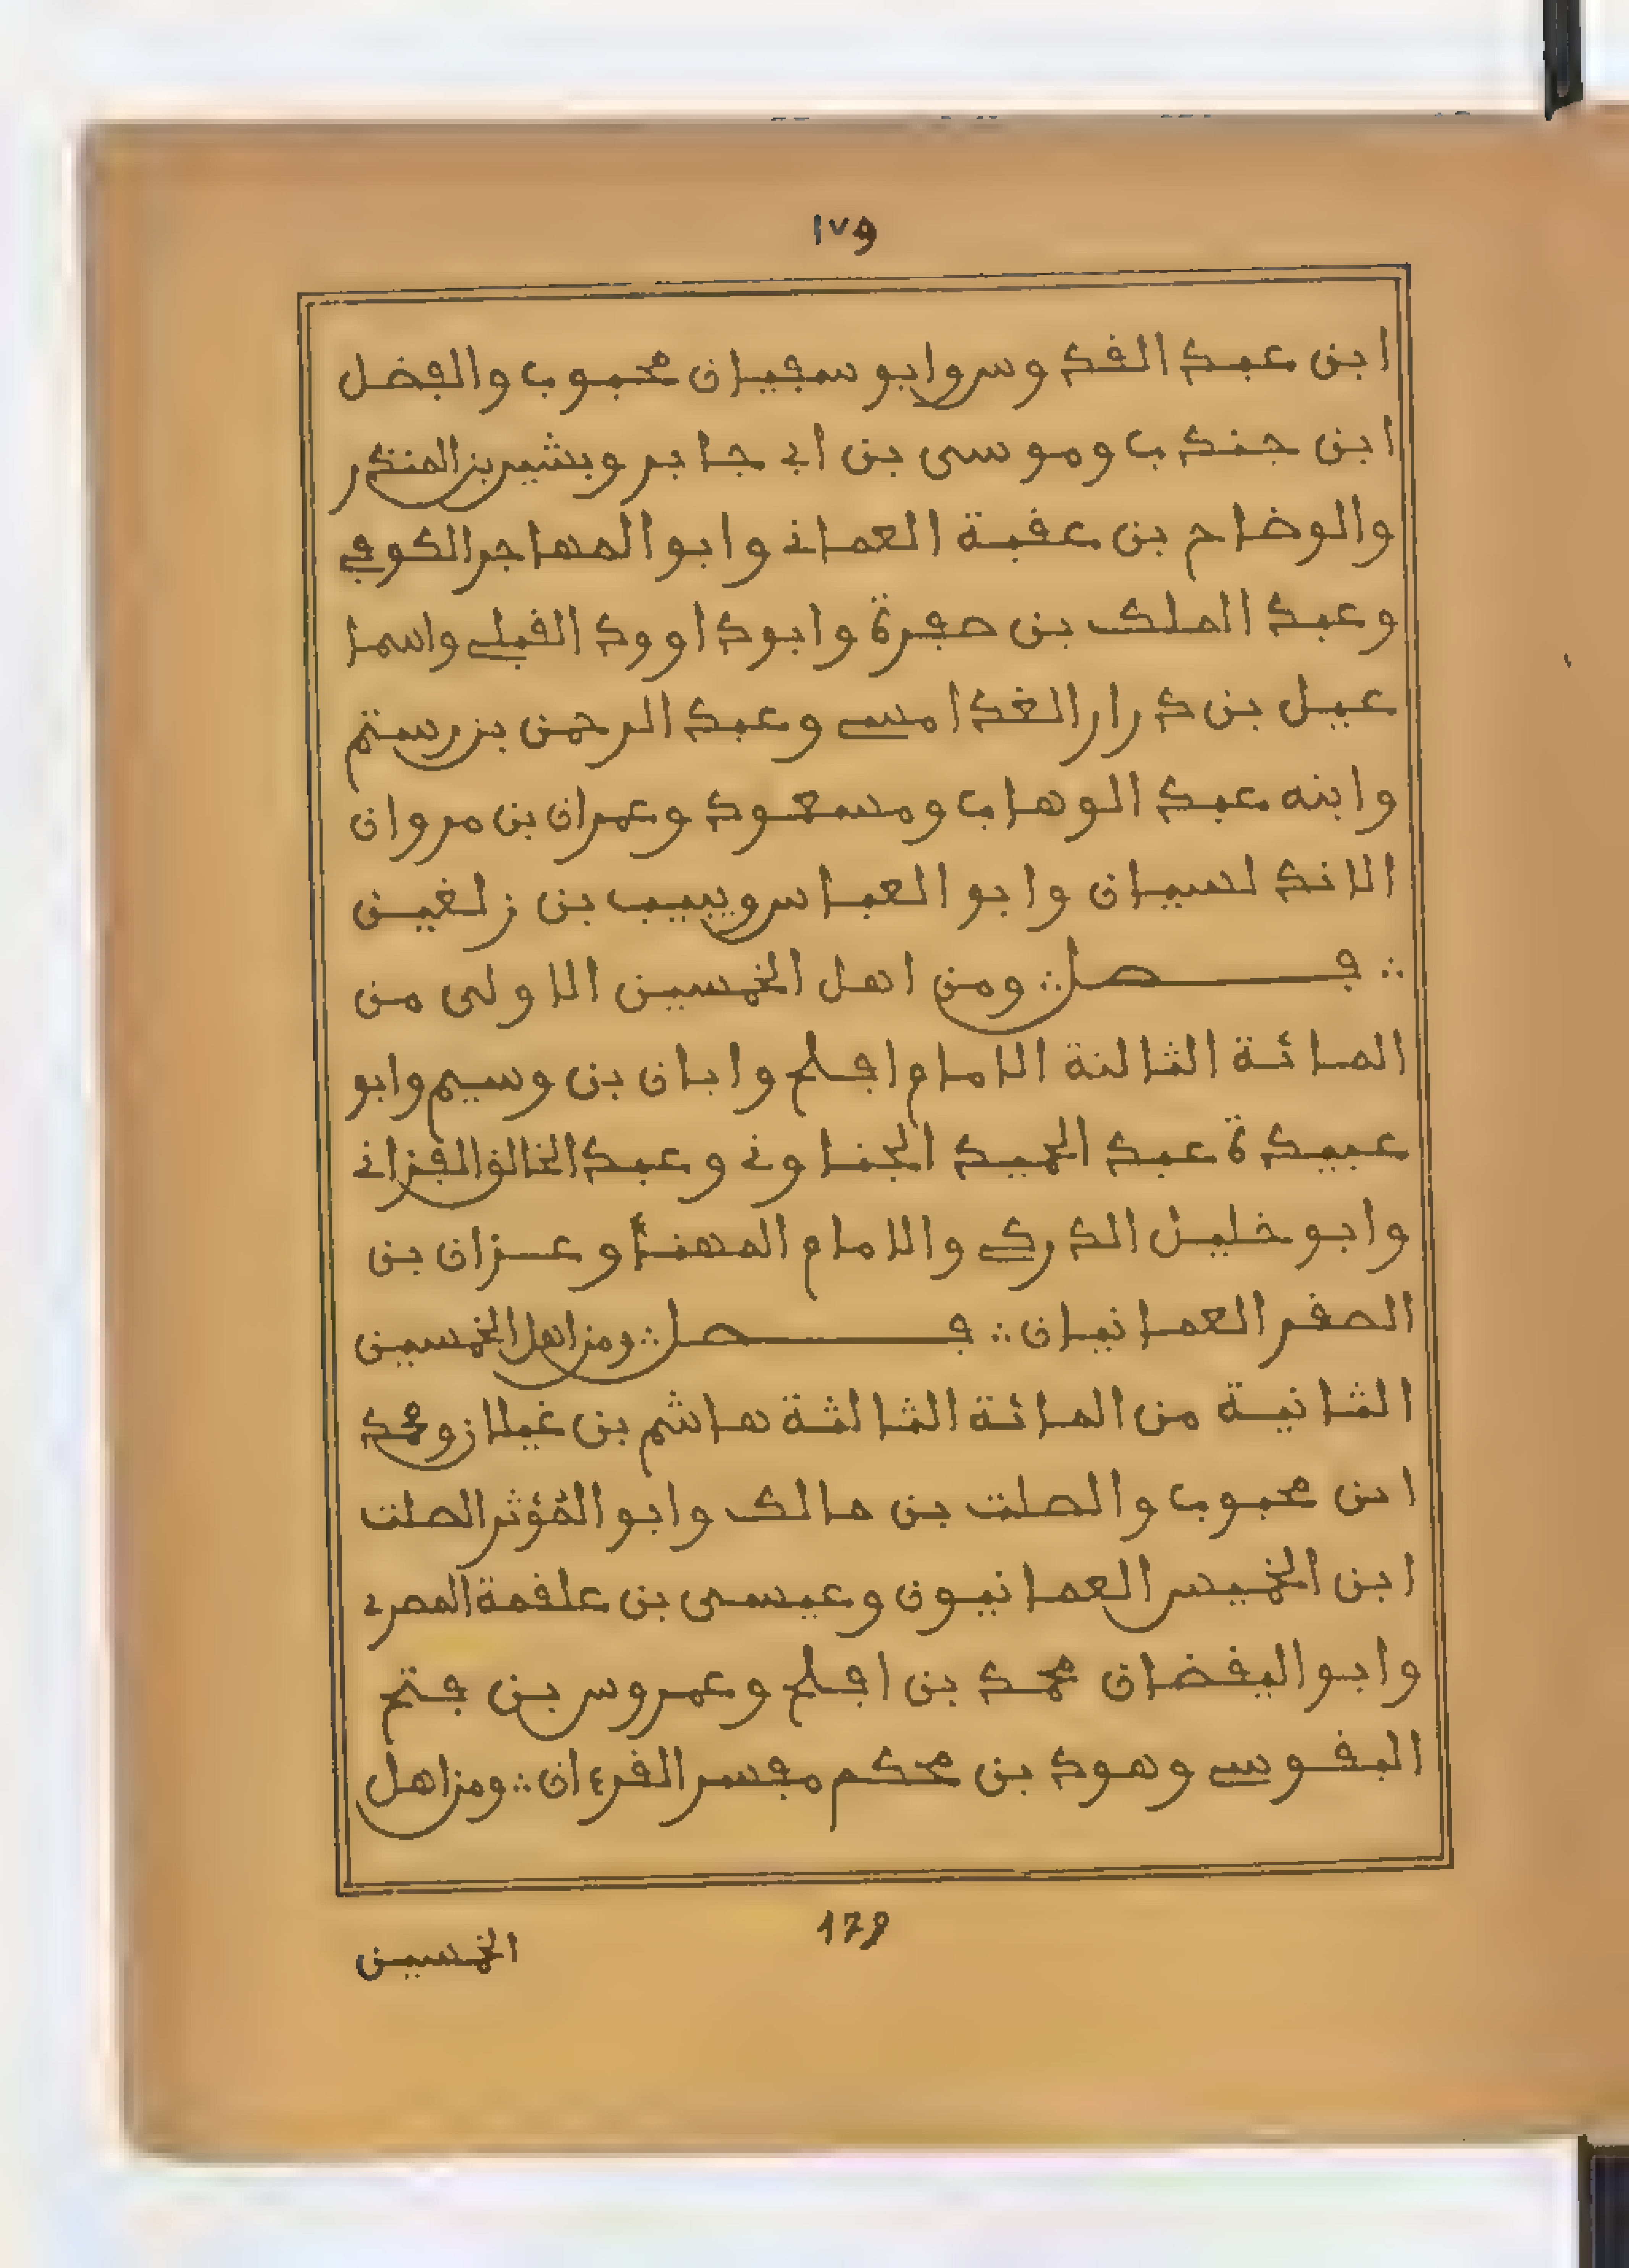 ١٧٩
ابن عبد القدوس وابو سفيان محبوب والفضل
ابن جندب وموسى بن ابي جابر وبشير بن المنذر
والوضاح بن عقبة العماني وابو المهاجر الكوفي
وعبد الملك بن صفرة وابو داوود القبلي واسما
عيل بن درار الغدامسي وعبد الرحمن بن رستم
وابنه عبد الوهاب ومسعود وعمران بن مروان
الاندلسيان وابو العباس وببيب بن زلغين
∴ فصل ∴ ومن اهل الخمسين الاولى من
المائة الثالثة الامام افلح وابان بن وسيم وابو
عبيدة عبد الحميد الجناوني وعبد الخالق الفزاني
وابو خليل الدركي والامام المهنأ وعزان بن
الصقر العمانيان ∴ فصل ∴ ومن اهل الخمسين
الثانية من المائة الثالثة هاشم بن غيلان ومحمد
ابن محبوب والصلت بن مالك وابو المؤثر الصلت
ابن الخميس العمانيون وعيسى بن علقمة المصري
وابو اليقضان محمد بن افلح وعمروس بن فتح
النفوسي وهود بن محكم مفسر القرءان ∴ ومن اهل
179
الخمسين